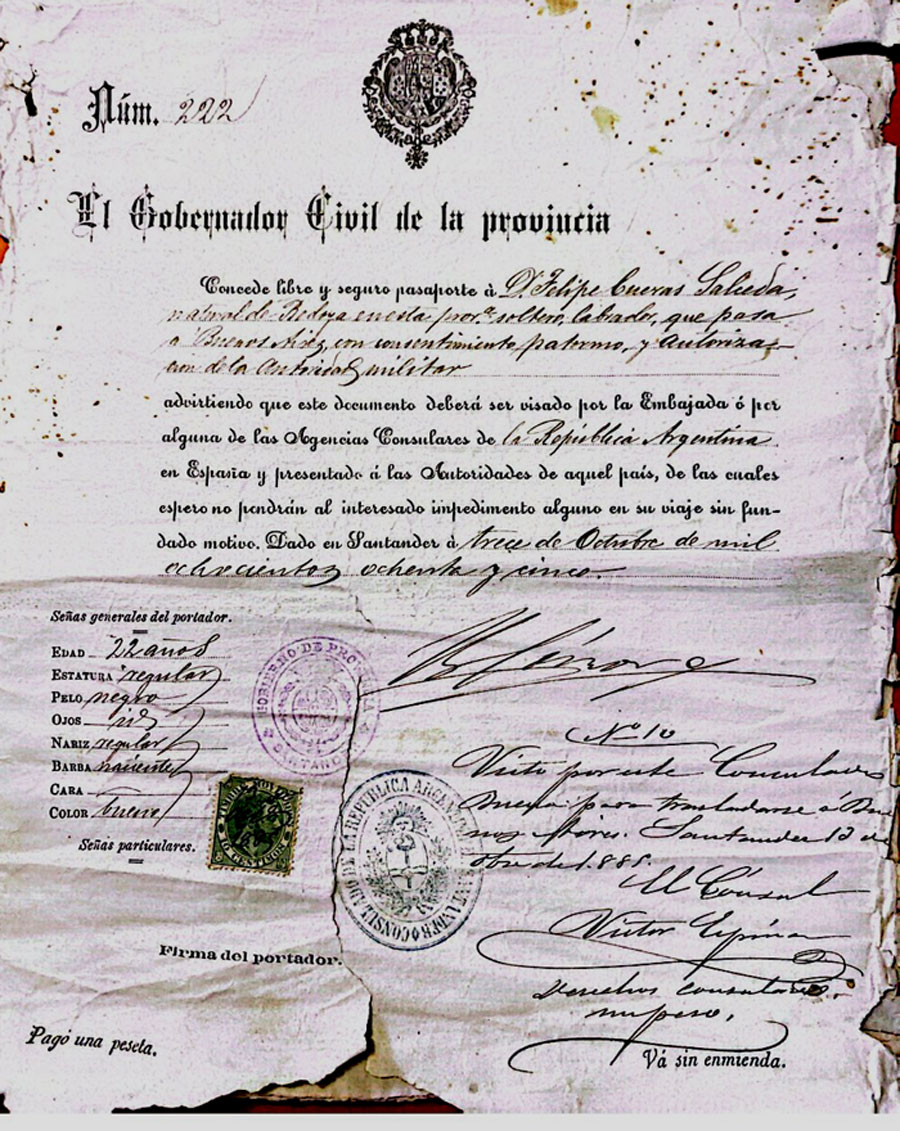 Núm. 222
El Gobernador Civil de la provincia
Concede libre y seguro pasaporte á D. Felipe Cuevas Salceda,
natural de Bedoya en esta prov.ª soltero, labrador, que pasa
a Buenos Aires con consentimiento paterno, y autoriza-
cion de la Autoridad militar
advirtiendo que este documento deberá ser visado por la Embajada ó por
alguna de las Agencias Consulares de la República Argentina
en España y presentado á las Autoridades de aquel país, de las cuales
espero no pondrán al interesado impedimento alguno en su viaje sin fun-
dado motivo. Dado en Santander á trece de Octubre de mil
ochocientos ochenta y cinco.
Señas generales del portador.
EDAD 22 años
ESTATURA regular
PELO negro
OJOS id
NARIZ regular
BARBA naciente
CARA
COLOR bueno
Señas particulares.
GOBIERNO DE PROVINCIA
SANTANDER
10 CENTIMOS
CONSULADO DE LA REPUBLICA ARGENTINA SANTANDER
Nº 10
Visto por este Consulado
bueno para trasladarse á Bue
nos Aires. Santander 13 de
Obre de 1.885.
El Cónsul
Victor Espina
Derechos consulares
un peso.
Firma del portador.
Pagó una peseta.
Vá sin enmienda.